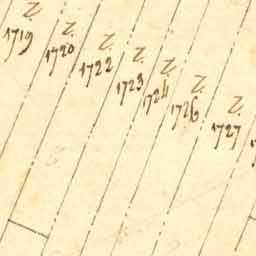 Z.
1719
Z.
1720
Z.
1722
Z.
1723
Z.
1724
Z.
1726
Z.
1727